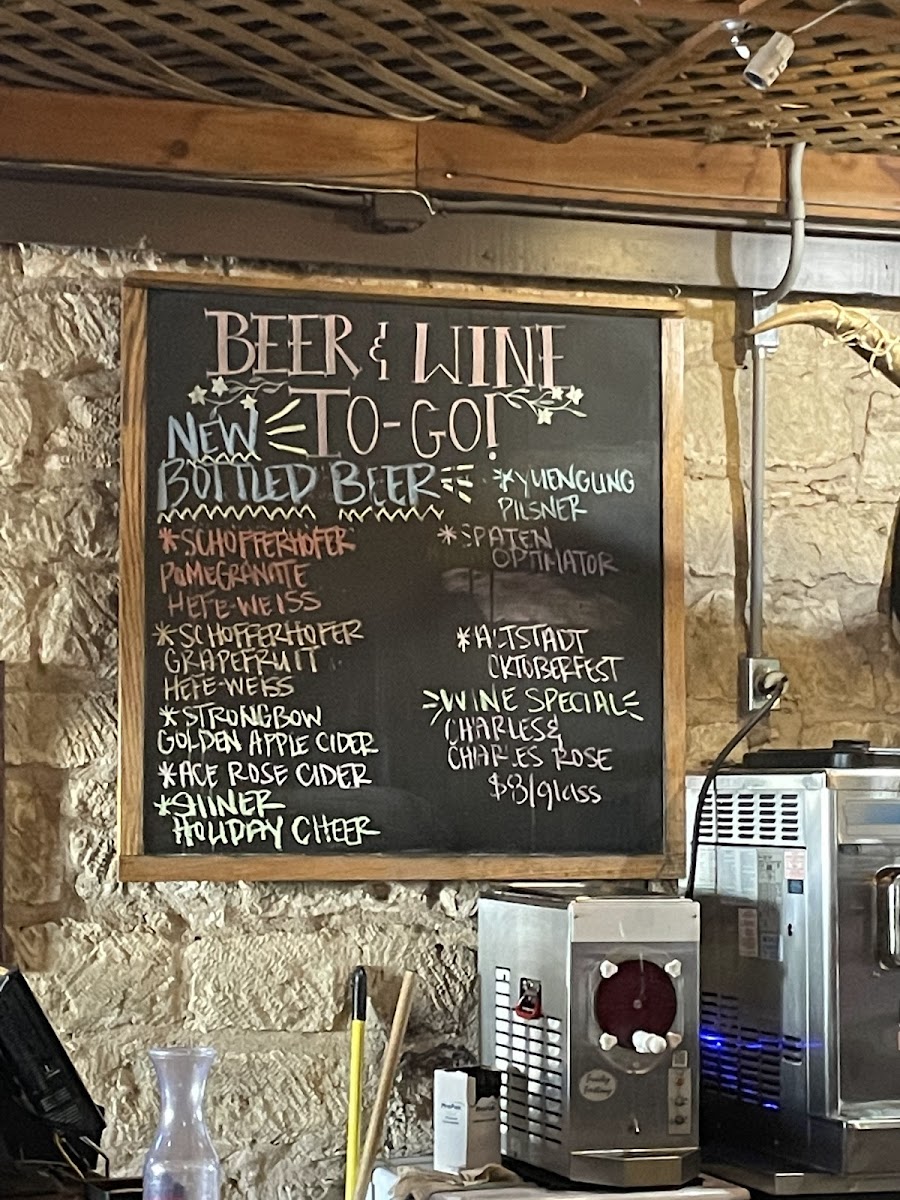 BEER & WINE
TO-GO!
NEW
BOTTLED BEER
*SCHOFFERHOFER
POMEGRANATE
HEFE-WEISS
*SCHOFFERHOFER
GRAPEFRUIT
HEFE-WEISS
*STRONGBOW
GOLDEN APPLE CIDER
*ACE ROSE CIDER
*SHINER
HOLIDAY CHEER
*YUENGLING
PILSNER
*SPATEN
OPTIMATOR
*ALTSTADT
OKTOBERFEST
WINE SPECIAL
CHARLES &
CHARLES ROSE
$8/glass